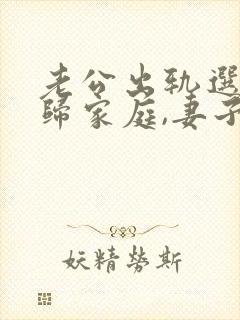 老公出轨选
歸家庭,妻子
妖精勞斯